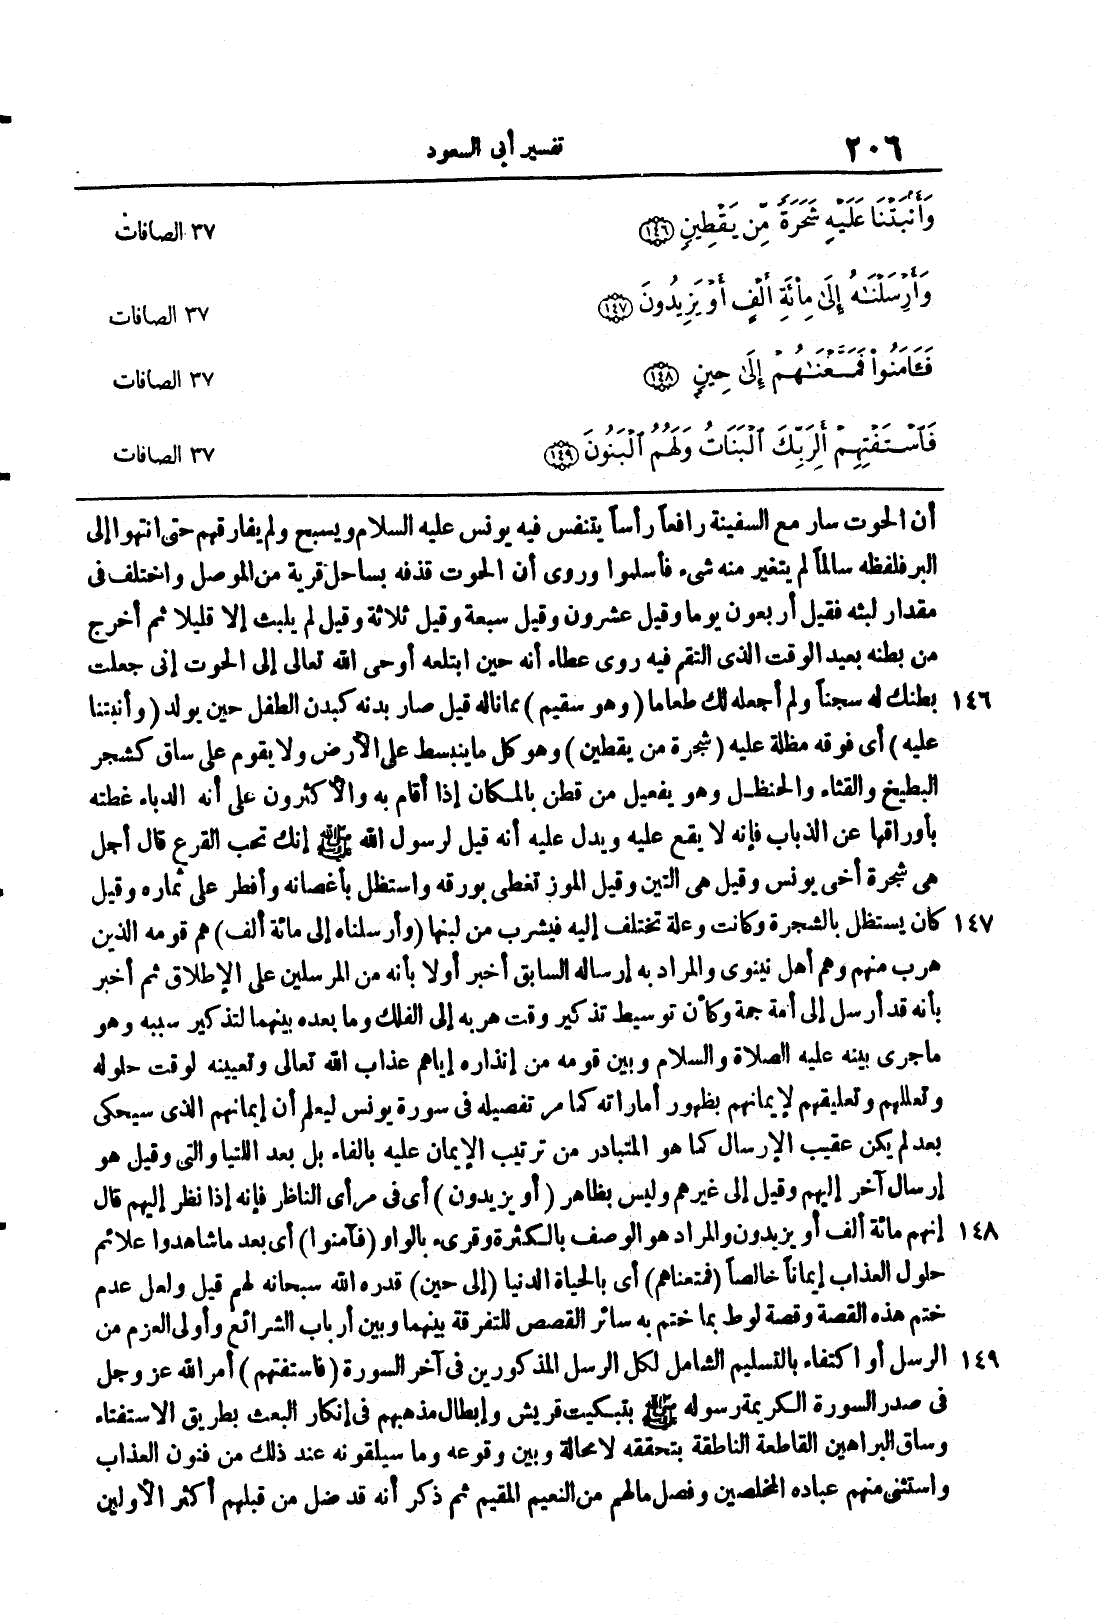 ٢٠٦ تفسير أبى السعود
وَأَنۢبَتْنَا عَلَيْهِ شَجَرَةً مِّن يَقْطِينٍ ﴿١٤٦﴾ ٣٧ الصافات
وَأَرْسَلْنَٰهُ إِلَىٰ مِا۟ئَةِ أَلْفٍ أَوْ يَزِيدُونَ ﴿١٤٧﴾ ٣٧ الصافات
فَـَٔامَنُوا۟ فَمَتَّعْنَٰهُمْ إِلَىٰ حِينٍ ﴿١٤٨﴾ ٣٧ الصافات
فَٱسْتَفْتِهِمْ أَلِرَبِّكَ ٱلْبَنَاتُ وَلَهُمُ ٱلْبَنُونَ ﴿١٤٩﴾ ٣٧ الصافات
أن الحوت سار مع السفينة رافعاً رأساً يتنفس فيه يونس عليه السلام ويسبح ولم يفارقهم حتى انتهوا إلى
البر فلفظه سالماً لم يتغير منه شىء فأسلموا وروى أن الحوت قذفه بساحل قرية من الموصل واختلف فى
مقدار لبثه فقيل أربعون يوما وقيل عشرون وقيل سبعة وقيل ثلاثة وقيل لم يلبث إلا قليلا ثم أخرج
من بطنه بعيد الوقت الذى التقم فيه روى عطاء أنه حين ابتلعه أوحى الله تعالى إلى الحوت إنى جعلت
١٤٦ بطنك له سجناً ولم أجعله لك طعاما ( وهو سقيم ) مما ناله قيل صار بدنه كبدن الطفل حين يولد ( وأنبتنا
عليه ) أى فوقه مظلة عليه ( شجرة من يقطين ) وهو كل ما ينبسط على الأرض ولا يقوم على ساق كشجر
البطيخ والقثاء والحنظل وهو يفعيل من قطن بالمكان إذا أقام به والأكثرون على أنه الدباء غطته
بأوراقها عن الذباب فإنه لا يقع عليه ويدل عليه أنه قيل لرسول الله ﷺ إنك تحب القرع قال أجل
هى شجرة أخى يونس وقيل هى التين وقيل الموز تغطى بورقه واستظل بأغصانه وأفطر على ثماره وقيل
١٤٧ كان يستظل بالشجرة وكانت وعلة تختلف إليه فيشرب من لبنها (وأرسلناه إلى مائة ألف) هم قومه الذين
هرب منهم وهم أهل نينوى والمراد به إرساله السابق أخبر أولا بأنه من المرسلين على الإطلاق ثم أخبر
بأنه قد أرسل إلى أمة جمة وكأن توسيط تذكير وقت هربه إلى الفلك وما بعده بينهما لتذكير سببه وهو
ماجرى بينه عليه الصلاة والسلام وبين قومه من إنذاره إياهم عذاب الله تعالى وتعيينه لوقت حلوله
وتعللهم وتعليقهم لإيمانهم بظهور أماراته كما مر تفصيله فى سورة يونس ليعلم أن إيمانهم الذى سيحكى
بعد لم يكن عقيب الإرسال كما هو المتبادر من ترتيب الإيمان عليه بالفاء بل بعد اللتيا والتى وقيل هو
إرسال آخر إليهم وقيل إلى غيرهم وليس بظاهر ( أو يزيدون ) أى فى مرأى الناظر فإنه إذا نظر إليهم قال
١٤٨ إنهم مائة ألف أو يزيدون والمراد هو الوصف بالكثرة وقرىء بالواو (فآمنوا) أى بعد ماشاهدوا علائم
حلول العذاب إيماناً خالصاً (فمتعناهم) أى بالحياة الدنيا (إلى حين) قدره الله سبحانه لهم قيل ولعل عدم
ختم هذه القصة وقصة لوط بما ختم به سائر القصص للتفرقة بينهما وبين أرباب الشرائع وأولى العزم من
١٤٩ الرسل أو اكتفاء بالتسليم الشامل لكل الرسل المذكورين فى آخر السورة ( فاستفتهم ) أمر الله عز وجل
فى صدر السورة الكريمة رسوله ﷺ بتبكيت قريش وإبطال مذهبهم فى إنكار البعث بطريق الاستفتاء
وساق البراهين القاطعة الناطقة بتحققه لا محالة وبين وقوعه وما سيلقونه عند ذلك من فنون العذاب
واستثنى منهم عباده المخلصين وفصل مالهم من النعيم المقيم ثم ذكر أنه قد ضل من قبلهم أكثر الأولين